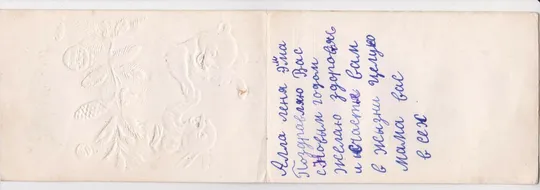 Алла леня Эма
Поздравляю Вас
с Новым годом
Желаю здоровья
и счастья вам
в жизни целую
мама вас
всех